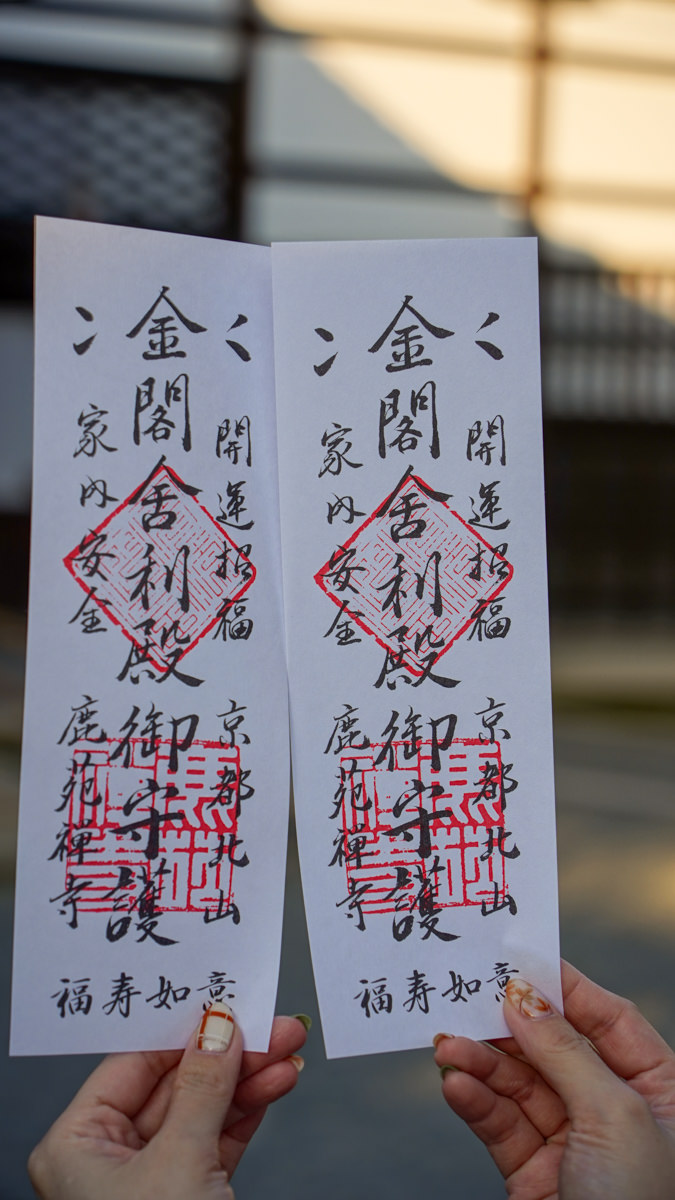 開運招福
京都北山
金閣舎利殿御守護
家内安全
鹿苑禪寺
福寿如意
開運招福
京都北山
金閣舎利殿御守護
家内安全
鹿苑禪寺
福寿如意